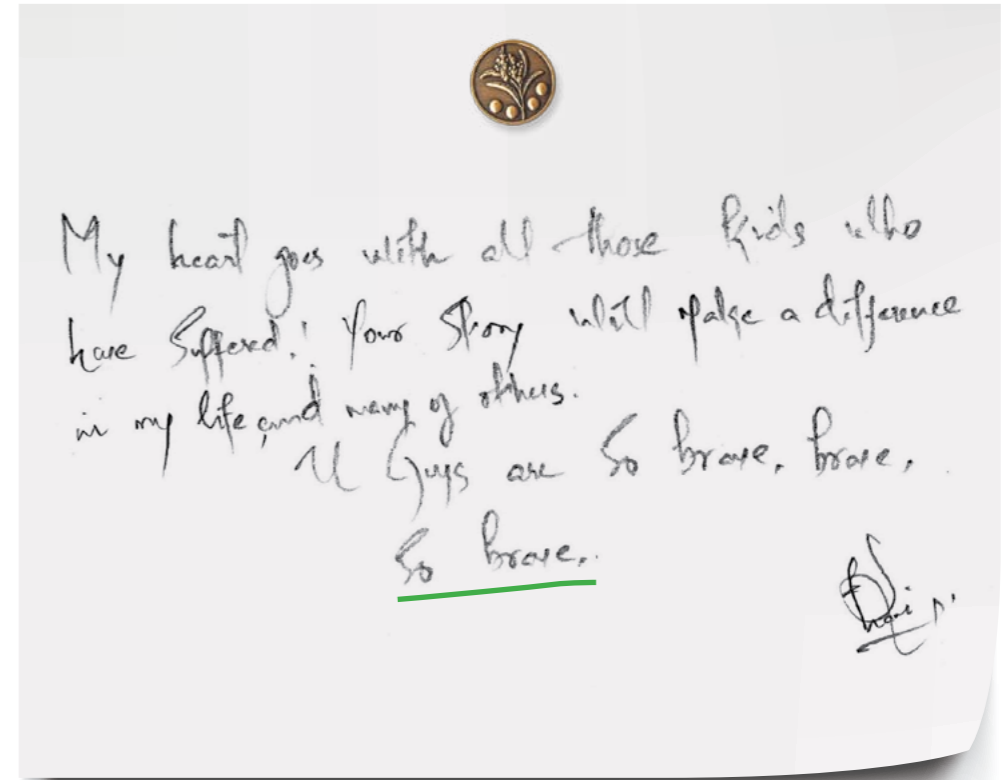 My heart goes with all those kids who
have Suffered! Your Story will make a difference
in my life, and many of others.
U Guys are So brave, brave,
So brave.